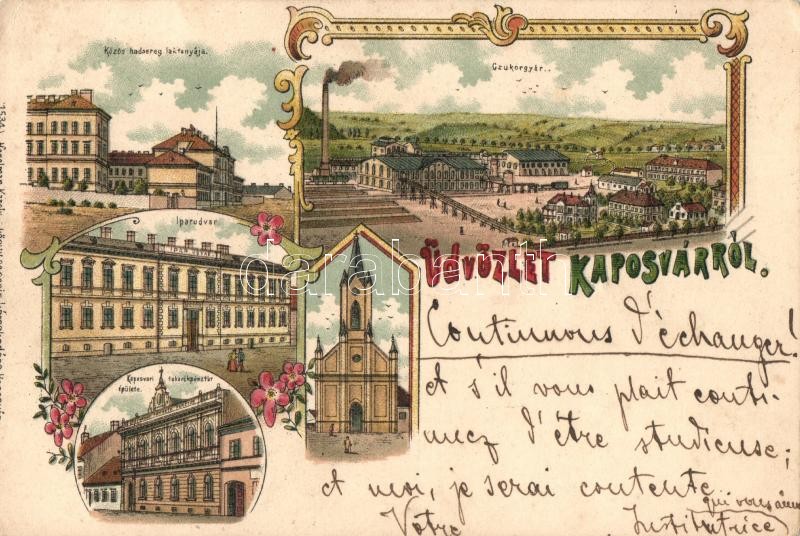 Közös hadsereg laktanyája.
Czukorgyár.
Iparudvar
Kaposvari takarékpénztár
épülete.
ÜDVÖZLET KAPOSVÁRRÓL.
darabanth.com
Continuons d'échanger!
et s'il vous plait conti-
nuez d'être studieuse;
et moi, je serai contente
qui vous aime
Votre Institutrice